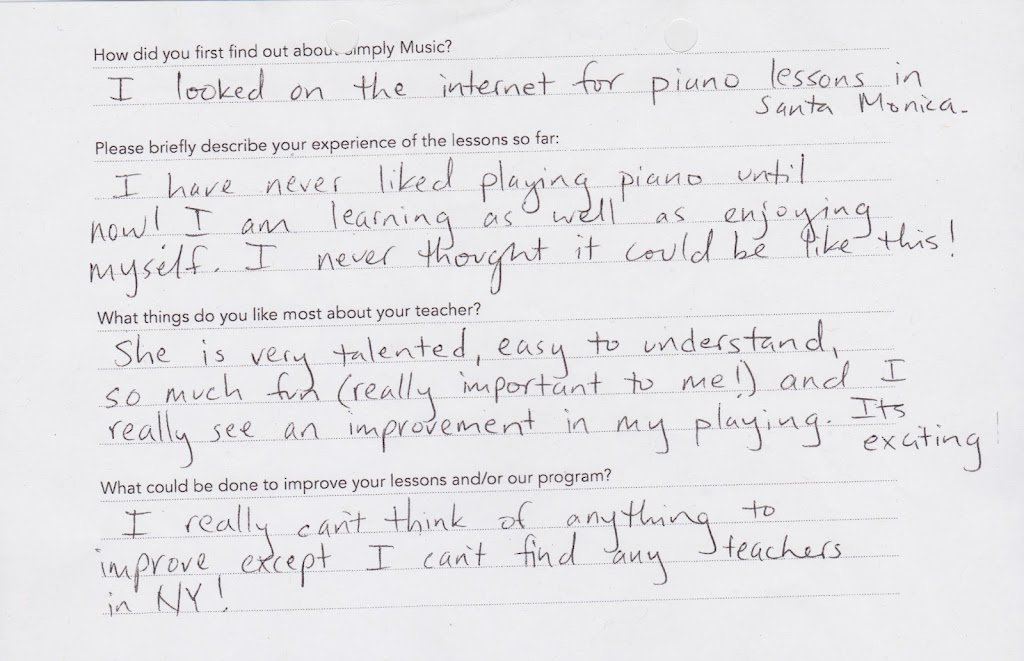 How did you first find out about Simply Music?
I looked on the internet for piano lessons in
Santa Monica.
Please briefly describe your experience of the lessons so far:
I have never liked playing piano until
now! I am learning as well as enjoying
myself. I never thought it could be like this!
What things do you like most about your teacher?
She is very talented, easy to understand,
so much fun (really important to me!) and I
really see an improvement in my playing. Its
exciting
What could be done to improve your lessons and/or our program?
I really can't think of anything to
improve except I can't find any teachers
in NY!